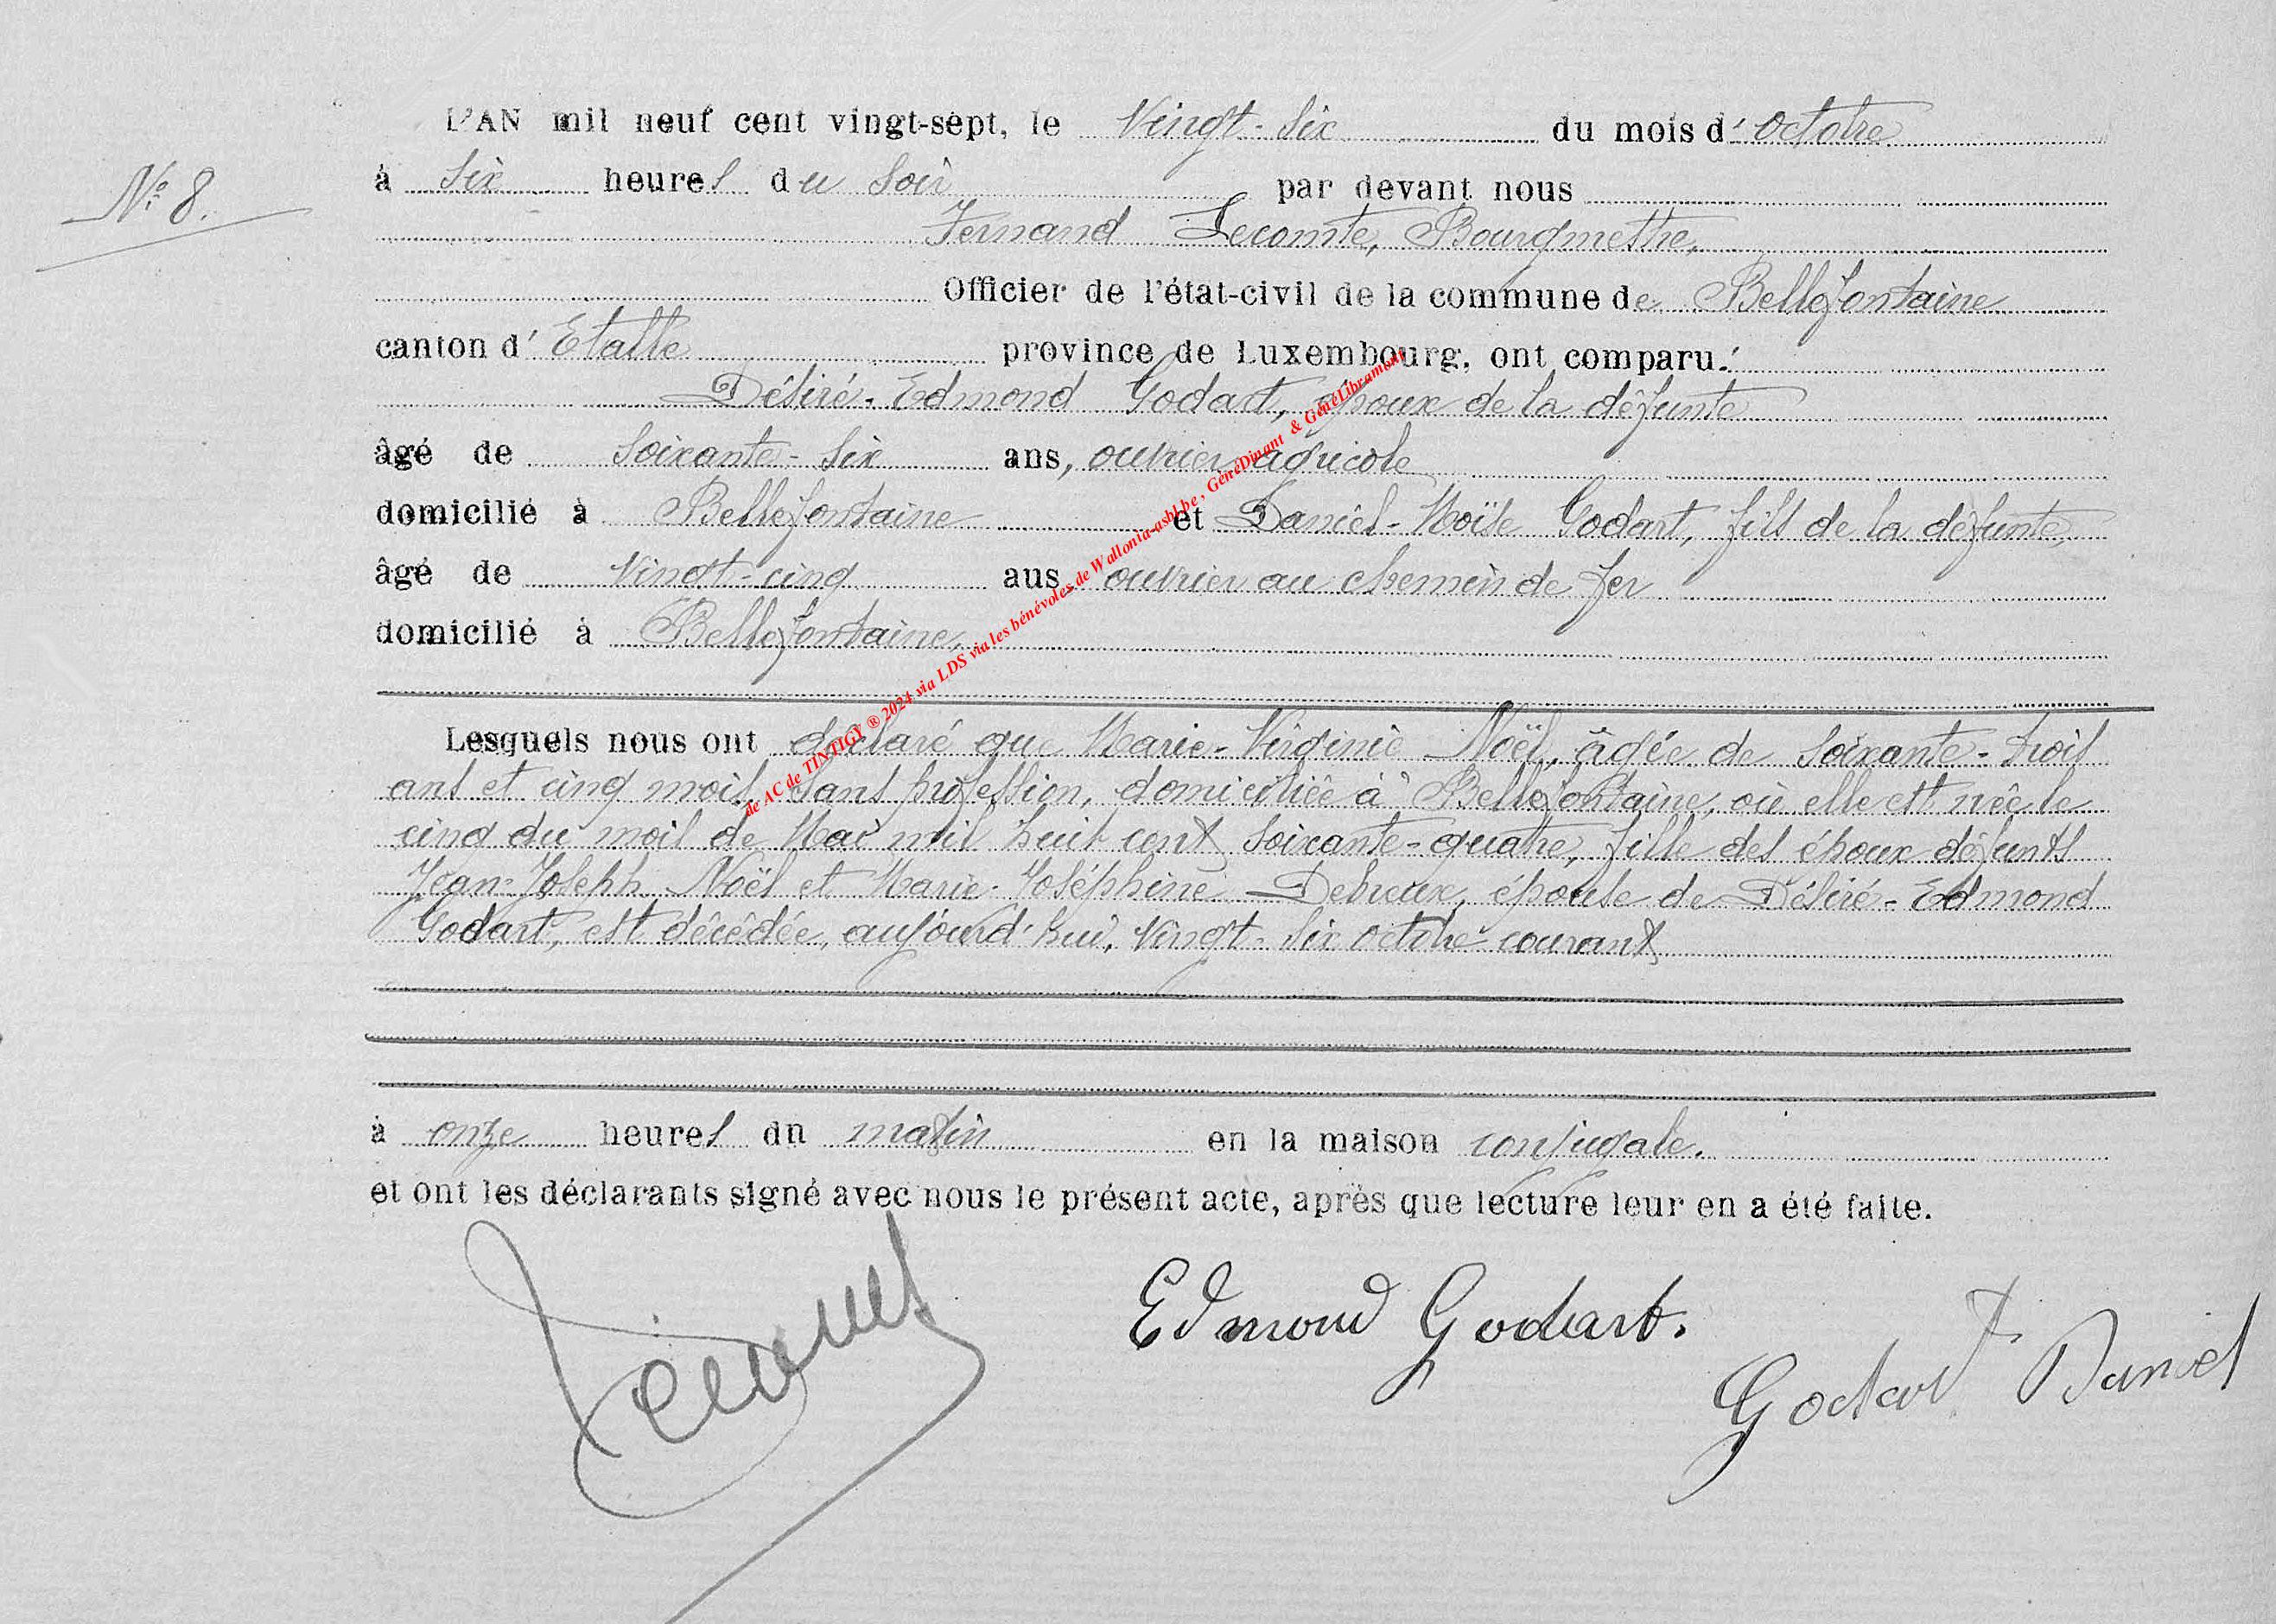 L'AN mil neuf cent vingt-sept, le Vingt-six du mois d'Octobre
N° 8.
à six heures du soir par devant nous
Fernand Lecomte, Bourgmestre,
Officier de l'état-civil de la commune de Bellefontaine
canton d'Etalle province de Luxembourg, ont comparu :
Désiré-Edmond Godart, époux de la défunte
âgé de soixante-six ans, ouvrier agricole
domicilié à Bellefontaine et Daniel-Moïse Godart, fils de la défunte,
âgé de vingt-cinq ans, ouvrier au chemin de fer
domicilié à Bellefontaine,
Lesquels nous ont déclaré que Marie-Virginie Noël, âgée de soixante-trois
ans et cinq mois, sans profession, domiciliée à Bellefontaine, où elle est née le
cinq du mois de Mai mil huit cent soixante-quatre, fille des époux défunts
Jean-Joseph Noël et Marie-Joséphine Debreux, épouse de Désiré-Edmond
Godart, est décédée, aujourd'hui, vingt-six octobre courant
à onze heures du matin en la maison conjugale.
et ont les déclarants signé avec nous le présent acte, après que lecture leur en a été faite.
Edmond Godart.
Godart Daniel
de AC de TINTIGY ® 2024 via LDS via les bénévoles de Wallonia-asbl.be, GénéDinant & GénéLibramont